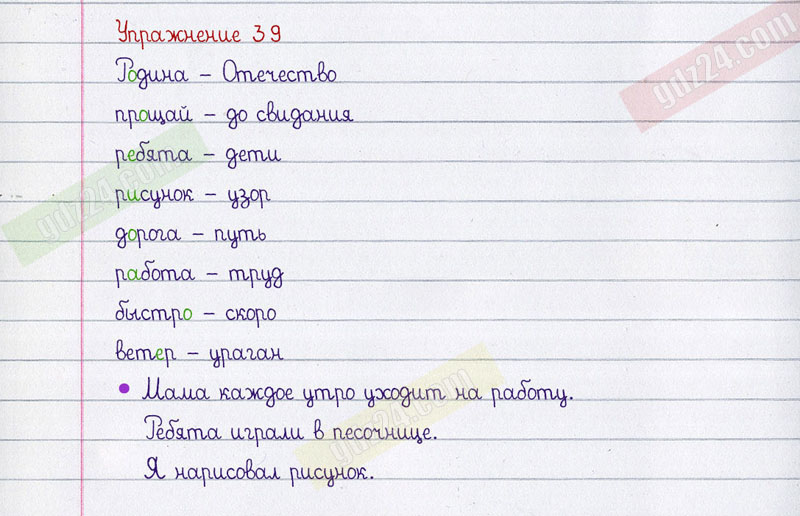 Упражнение 39
gdz24.com
Родина – Отечество
прощай – до свидания
ребята – дети
gdz24.com
рисунок – узор
дорога – путь
работа – труд
быстро – скоро
ветер – ураган
• Мама каждое утро уходит на работу.
Ребята играли в песочнице.
gdz24.com
Я нарисовал рисунок.